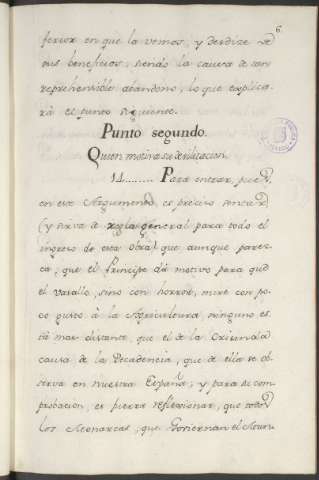 6
ferior en que la vemos, y desdize de
sus beneficios, siendo la causa de tan
reprehensible abandono, lo que explica-
rá el punto siguiente.
Punto segundo.
Quien motiva su devilitacion.
14........ Para entrar, pues,
en este Argumento es preciso sentar
(y sirva de regla general para todo el
ingreso de esta obra) que aunque parez-
ca, que el Principe dá motivo para que
el Vasallo, sino con horror, mire con po-
co gusto à la Agricultura, ninguno es-
tà mas distante, que él de la Criminal
causa de la Decadencia, que de ella se ob-
serva en nuestra España; y para su com-
probacion, es fuerza reflexionar, que todos
los Monarcas, que Goviernan el Mun-